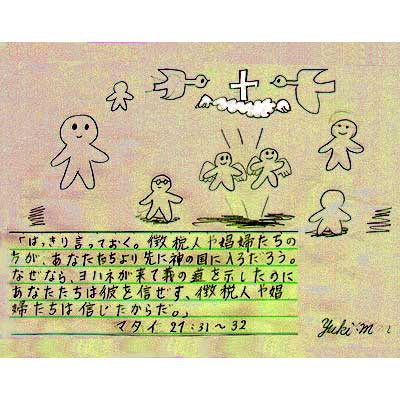 「はっきり言っておく。徴税人や娼婦たちの
方が、あなたたちより先に神の国に入るだろう。
なぜなら、ヨハネが来て義の道を示したのに
あなたたちは彼を信ぜず、徴税人や娼
婦たちは信じたからだ。」
マタイ 21:31〜32
Yuki.m